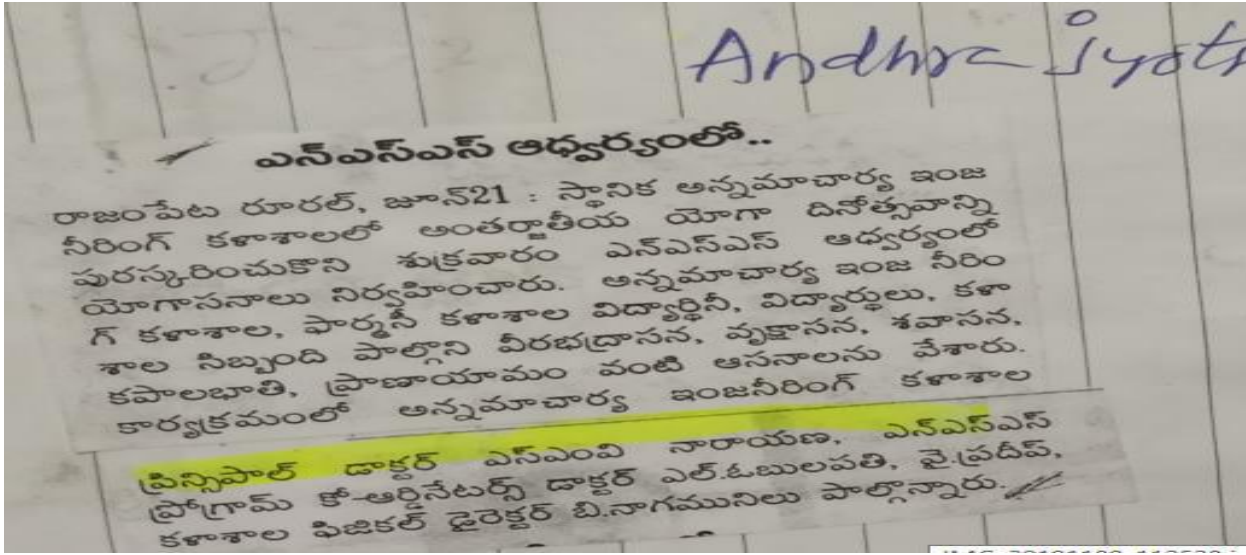 Andhra Jyoti
ఎన్ఎస్ఎస్ ఆధ్వర్యంలో..
రాజంపేట రూరల్, జూన్21 : స్థానిక అన్నమాచార్య ఇంజ
నీరింగ్ కళాశాలలో అంతర్జాతీయ యోగా దినోత్సవాన్ని
పురస్కరించుకొని శుక్రవారం ఎన్ఎస్ఎస్ ఆధ్వర్యంలో
యోగాసనాలు నిర్వహించారు. అన్నమాచార్య ఇంజ నీరిం
గ్ కళాశాల, ఫార్మసీ కళాశాల విద్యార్థినీ, విద్యార్థులు, కళా
శాల సిబ్బంది పాల్గొని వీరభద్రాసన, వృక్షాసన, శవాసన,
కపాలభాతి, ప్రాణాయామం వంటి ఆసనాలను వేశారు.
కార్యక్రమంలో అన్నమాచార్య ఇంజనీరింగ్ కళాశాల
ప్రిన్సిపాల్ డాక్టర్ ఎస్ఎంవి నారాయణ, ఎన్ఎస్ఎస్
ప్రోగ్రామ్ కో-ఆర్డినేటర్స్ డాక్టర్ ఎల్.ఓబులపతి, వై.ప్రదీప్,
కళాశాల ఫిజికల్ డైరెక్టర్ బి.నాగమునిలు పాల్గొన్నారు.